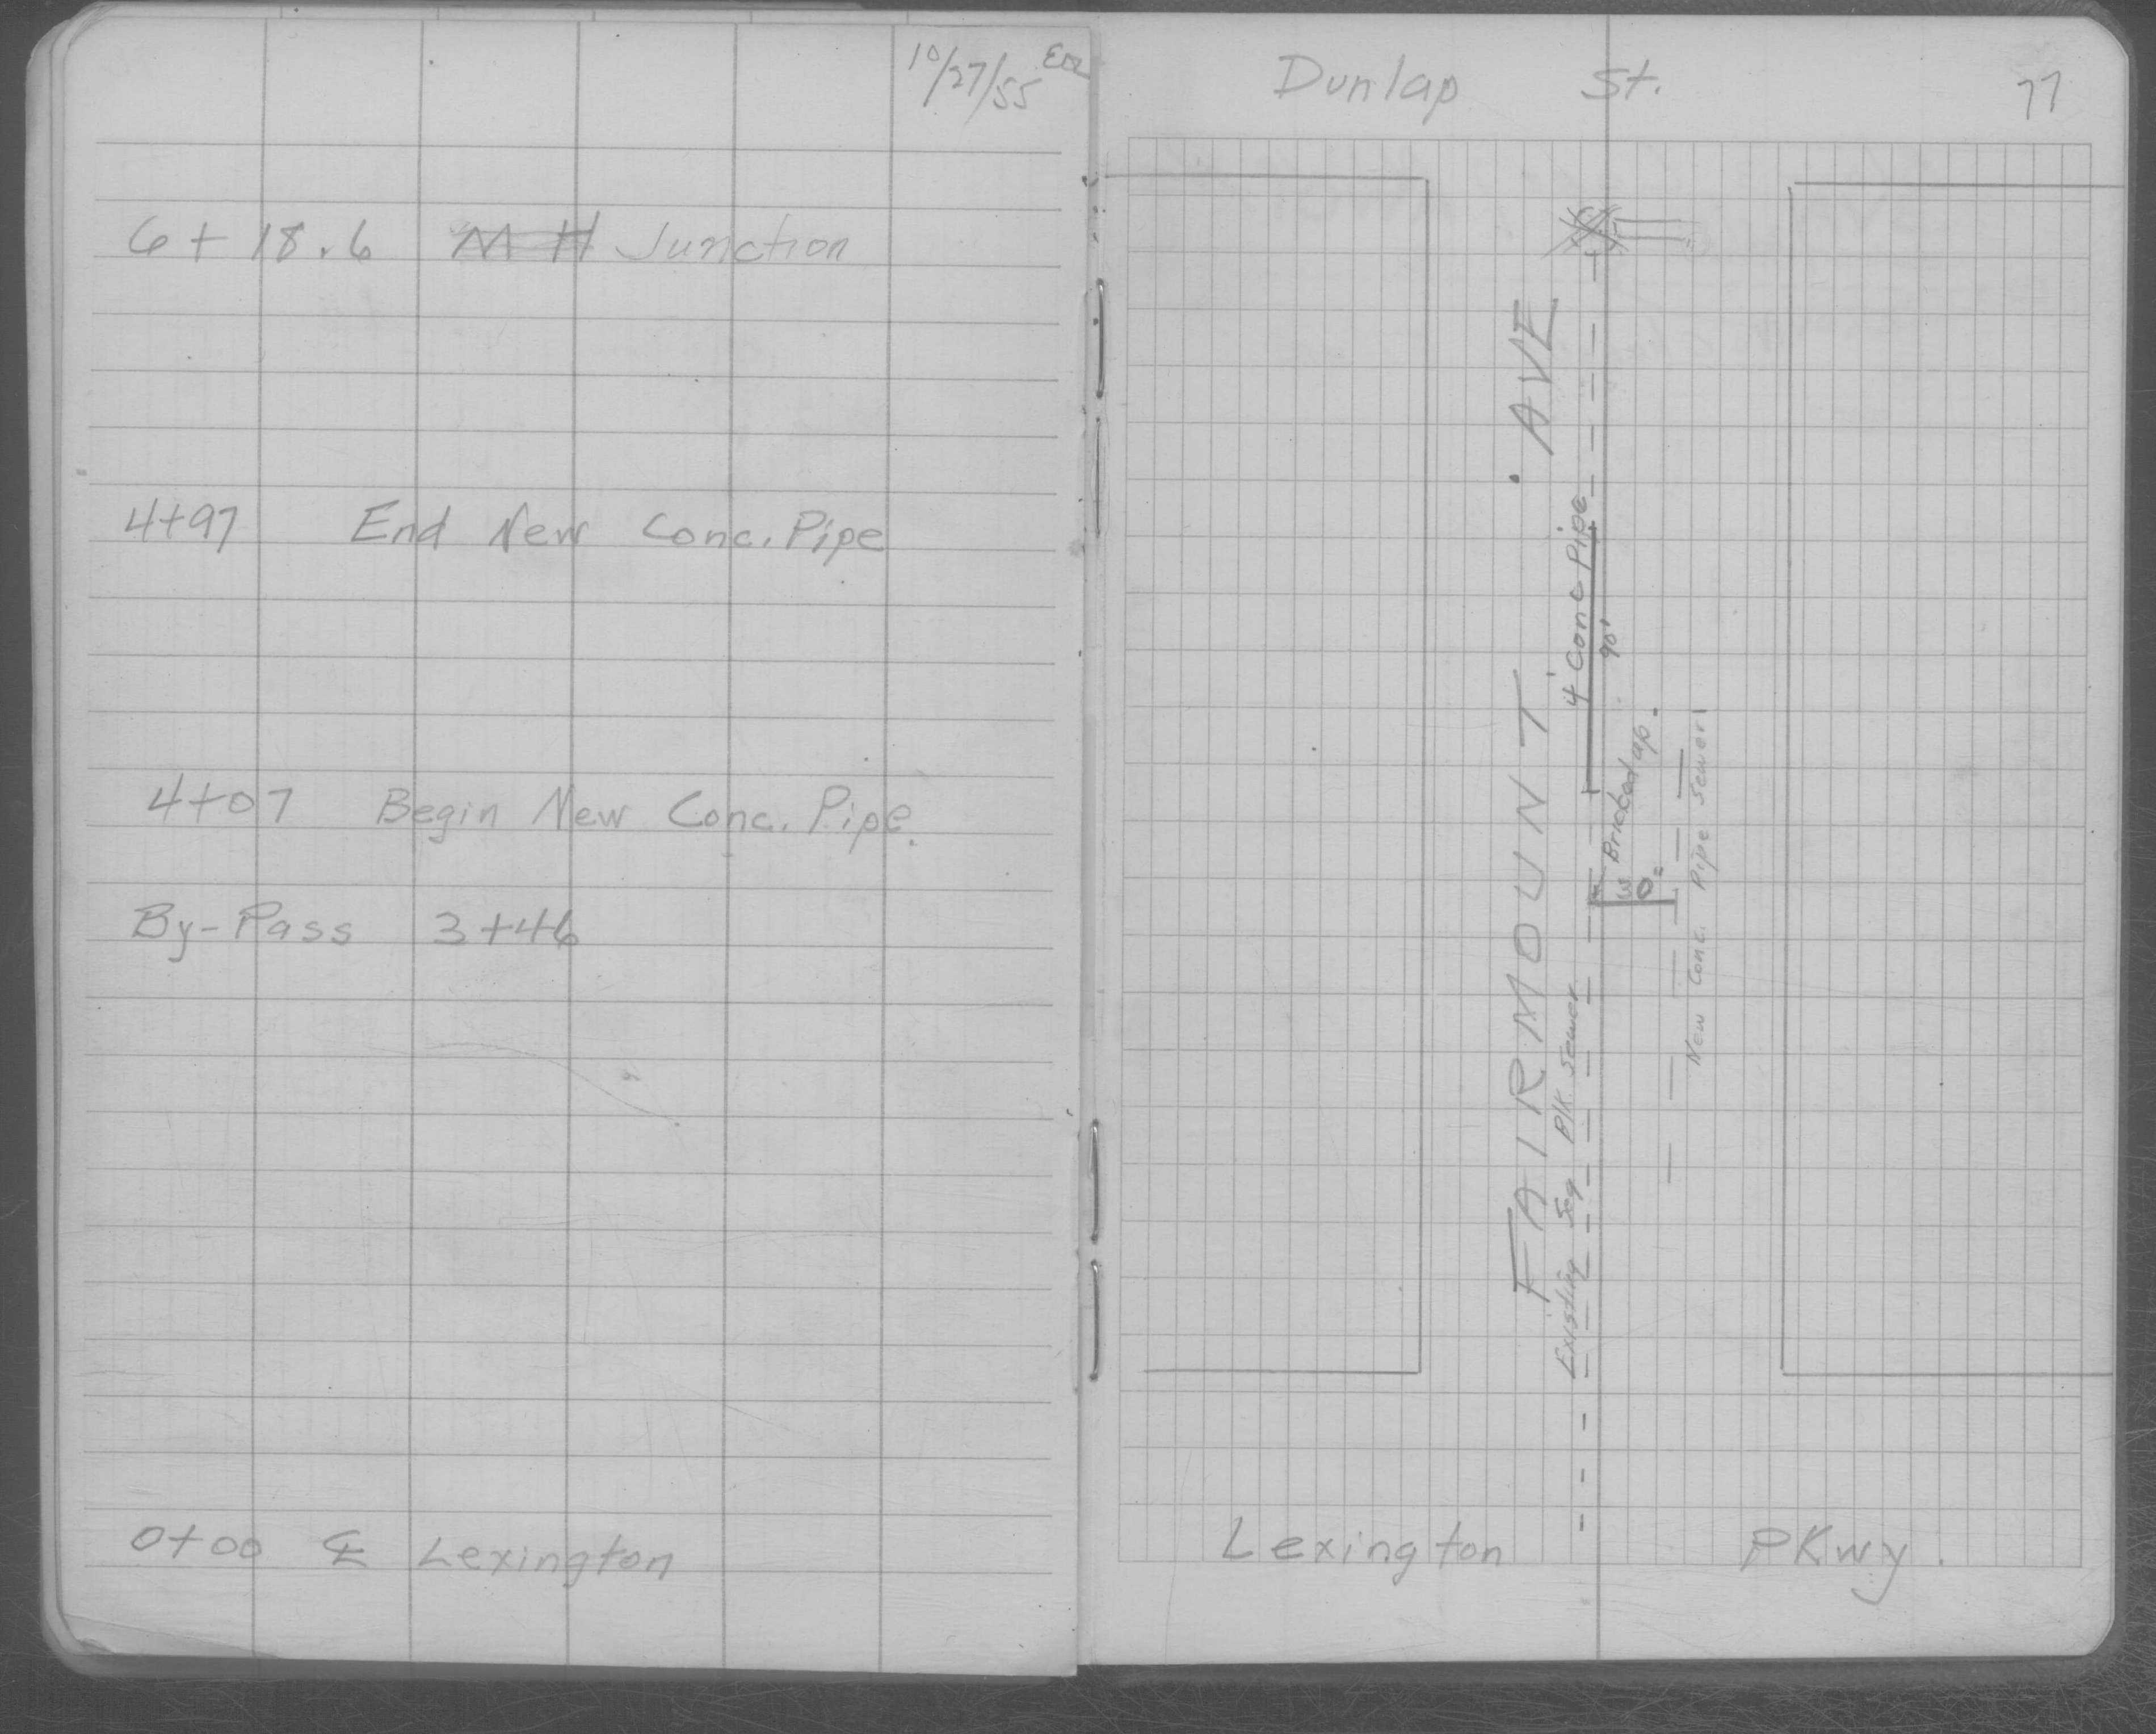 10/27/55
6+18.6 M H Junction
4+97 End New Conc. Pipe
4+07 Begin New Conc. Pipe.
By-Pass 3+46
0+00 ℄ Lexington
Dunlap St. 77
FAIRMOUNT AVE
4' Conc Pipe
90'
Bricked up.
New Conc. Pipe Sewer
Existing Seg Blk Sewer
Lexington PKwy.